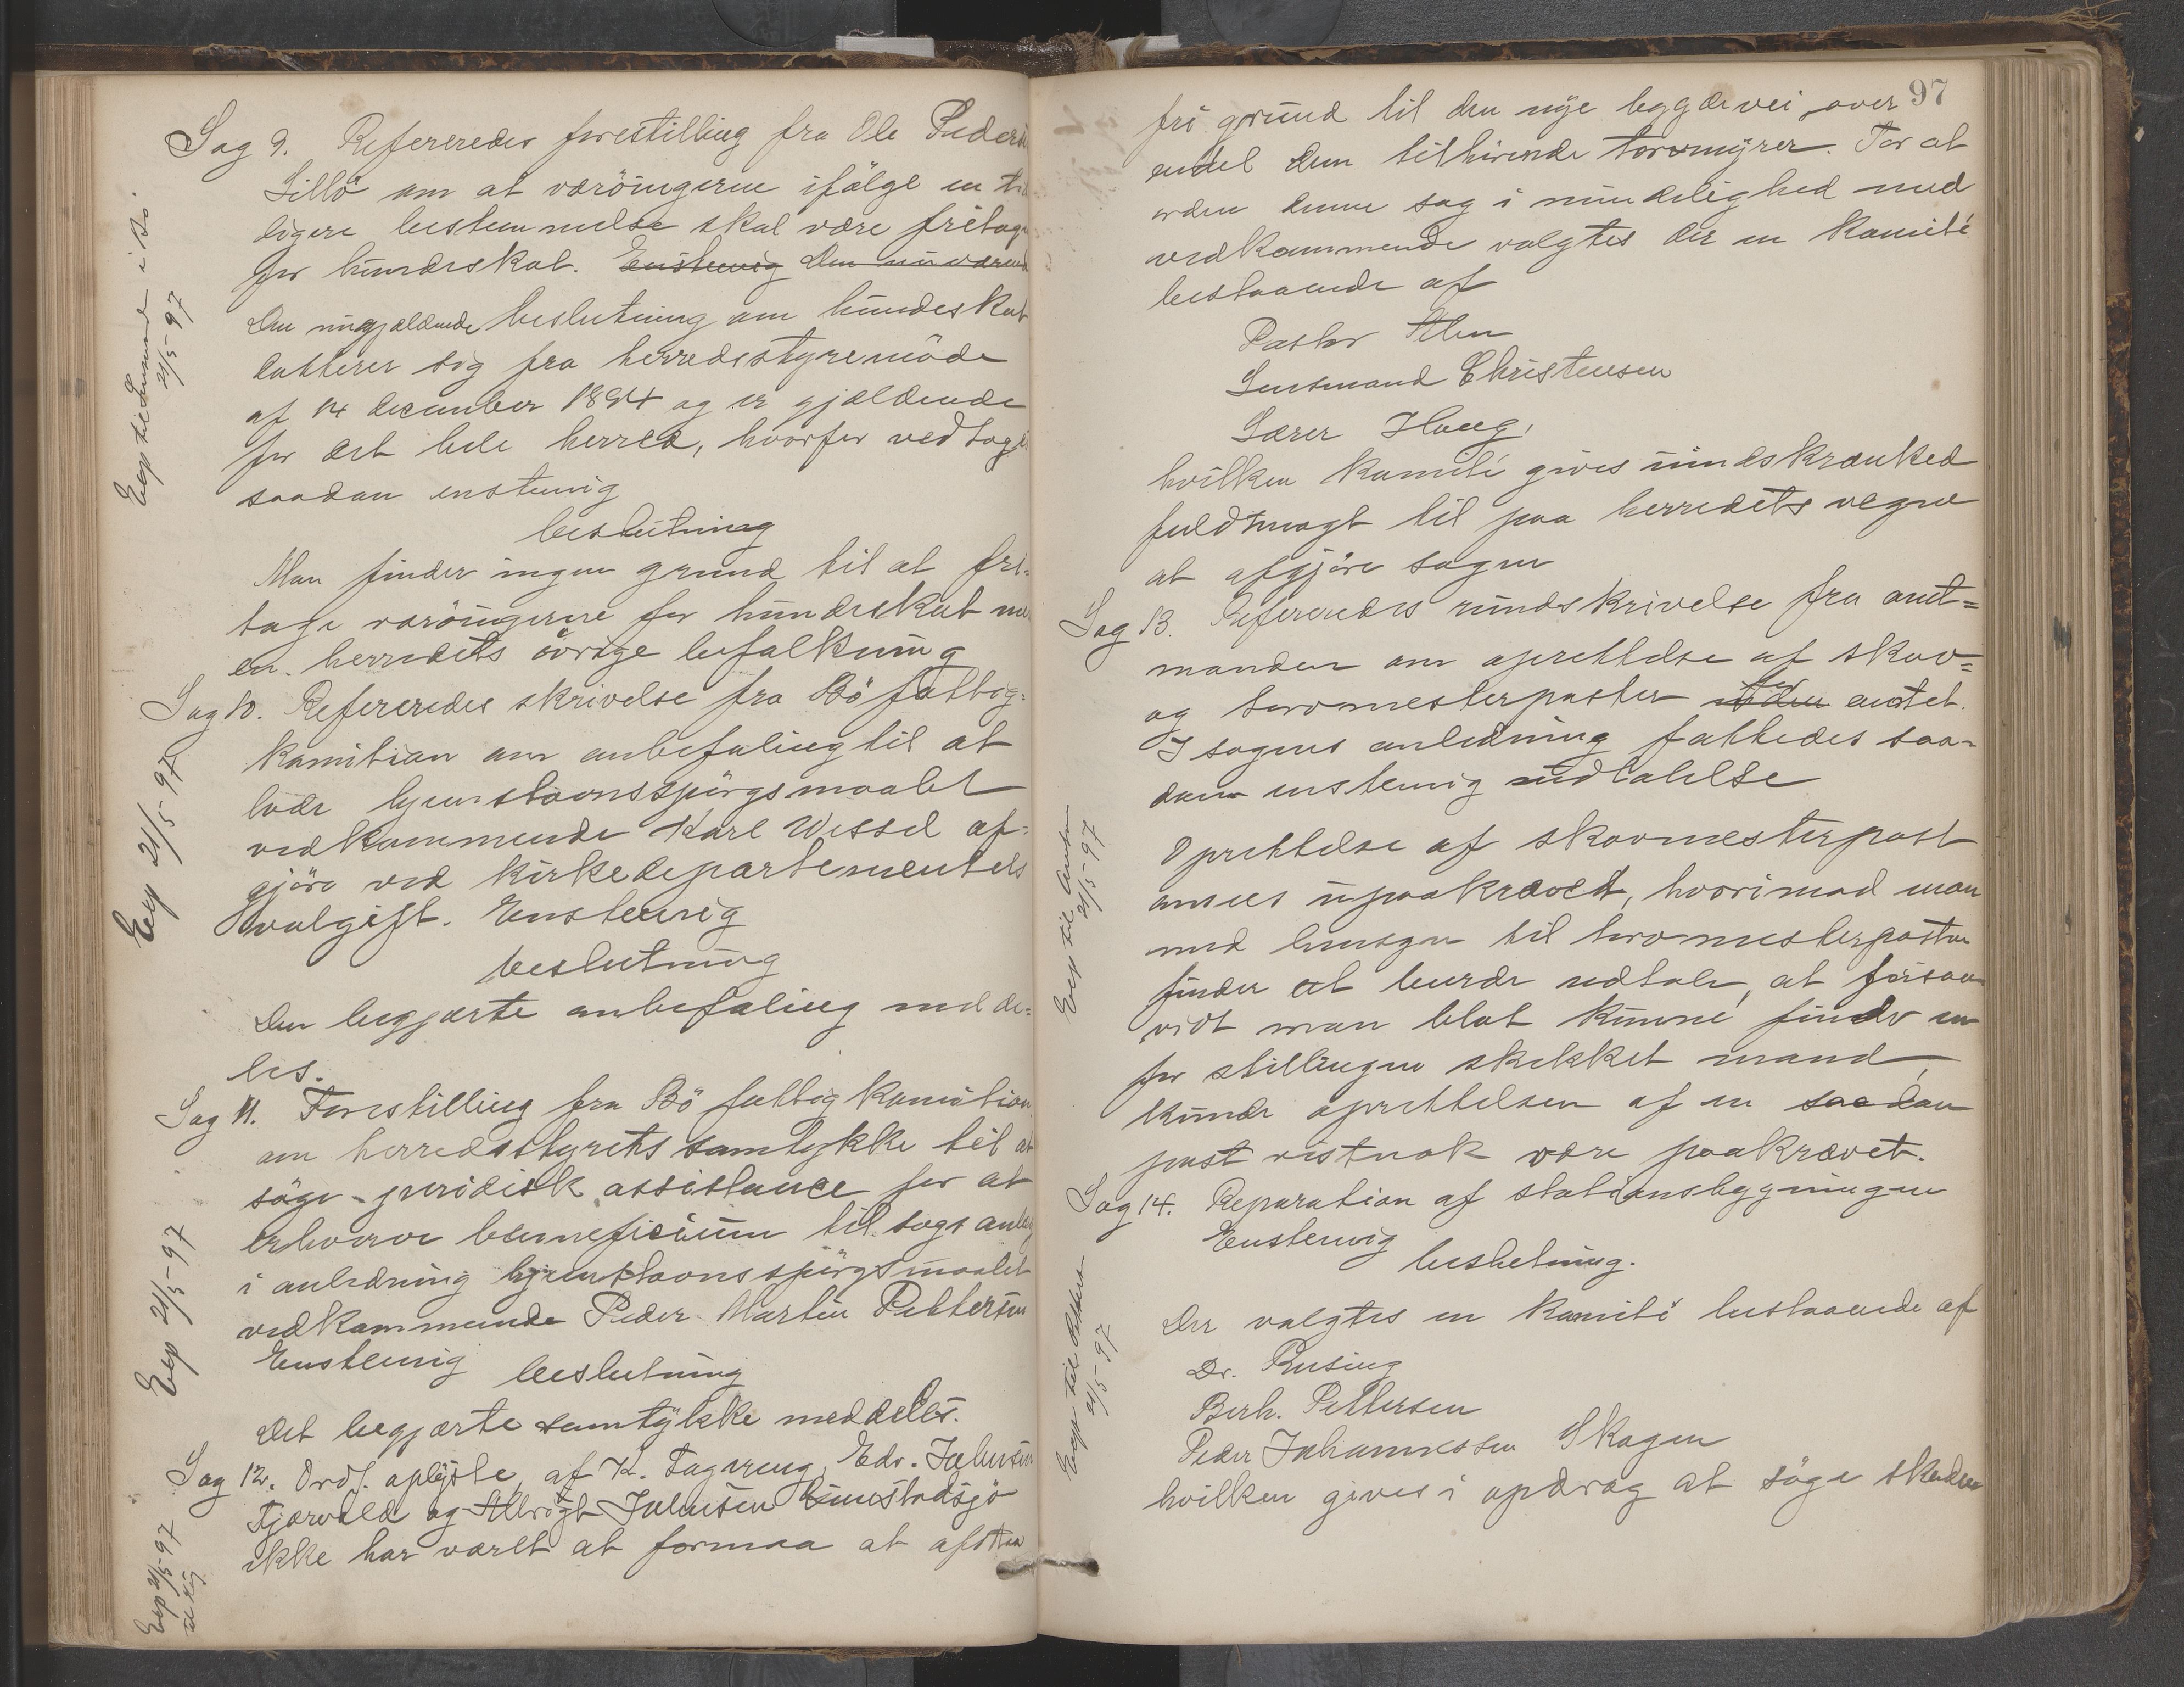 Sag 9. Refereredes forestilling fra Ole Peders
Lillö om at væröingerne ifölge en ti
ligere bestemmelse skal være fritag
for hundeskat. Enstemig Den nuværend
Den nugjældende beslutning om hundeskat
datterer sig fra herredsstyremöde
af 14 december 1894 og er gjældende
for det hele herred, hvorfor vedtoges
saadan enstemig
beslutning
Man finder ingen grund til at fri-
tage væröingerne for hundeskat
en herredets övrige befalkning
Exp til Lensmand i Bö
21/5-97
Sag 10. Refereredes skrivelse fra Bö fattig-
komition om anbefaling til at
lade hjemstavnsspörgsmaalet
vedkommende Karl Wessel af-
gjöre ved kirkedepartementets
valgift. Enstemig
beslutning
Den begjærte anbefaling meddel-
les.
Exp 21/5-97
Sag 11. Forestilling fra Bö fattigkomition
om herredsstyrets samtykke til at
söge juridisk assistance for at
erhverve benneficium til sags anlæg
i anledning hjemstavnsspörgsmaalet
vedkommende Peder Martin Pettersen
Enstemig
beslutning
Det begjærte samtykke meddeles.
Exp 21/5-97
Sag 12. Ordf. oplyste, af K. Fagereng, Edv. Johnsen
Fjærvold og Albrigt Johnsen Eimestadsjö
ikke har været at formaa at afstaa
Exp 21/5-97
97
fri grund til den nye bygdevei over
endel dem tilhörende torvmyrer. For at
orden denne sag i mindelighed med
vedkommende valgtes der en komité
bestaaende af
Pastor Alm
Lensmand Christensen
Lærer Haug,
hvilken komité gives uindskrænked
fuldmagt til paa herredets vegne
at afgjöre sagen
Sag 13. Refereredes rundskrivelse fra amt-
manden om oprettelse af skov-
og torvmesterposter for amtet.
I sagens anledning fattedes saa-
dan enstemig udtalelse
Oprettelse af skovmesterpost
ansees upaakrævet, hvorimod man
med hensyn til torvmesterposten
finder at burde udtale, at forsaa-
vidt man blot kunne finde en
for stillingen skikket mand,
kunde oprettelsen af en saadan
post vistnok være paakrævet.
Exp til Amtm
21/5-97
Sag 14. Reparation af stationsbygningen
Enstemig
beslutning.
Der valgtes en komité bestaaende af
Dr. Rusing
Berh. Pettersen
Peder Johannessen Skagen
hvilken gives i opdrag at söge skaden
21/5-97